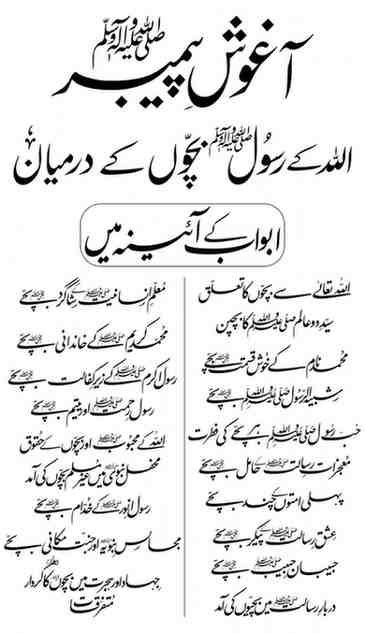 آغوشِ پیمبر ﷺ
اللہ کے رسُول ﷺ بچّوں کے درمیان
ابواب کے آئینہ میں
اللہ تعالیٰ سے بچوں کا تعلق
سیّدِ دو عالم ﷺ کا بچپن
محمد نام کے خوش قسمت بچے
شبیہ الرسول ﷺ بچے
حب رسول ﷺ ہر بچے کی فطرت
معجزات رسالت ﷺ کے حامل بچے
پہلی امتوں کے چند بچے
عشق رسالت ﷺ کے پیکر بچے
حبیبان حبیب ﷺ بچے
دربار رسالت ﷺ میں بچوں کی آمد
معلّم انسانیت ﷺ کے شاگرد بچے
محمد کریم ﷺ کے خاندانی بچے
رسول اکرم ﷺ کے زیر کفالت بچے
رسول رحمت ﷺ اور یتیم بچے
اللہ کے محبوب ﷺ اور بچوں کے حقوق
محفل نبوی ﷺ میں غیر مسلم بچوں کی آمد
رسول انور ﷺ کے خدام بچے
مجالس نبویہ ﷺ اور جنت مکانی بچے
جہاد اور ہجرت میں بچوں کا کردار
متفرقات